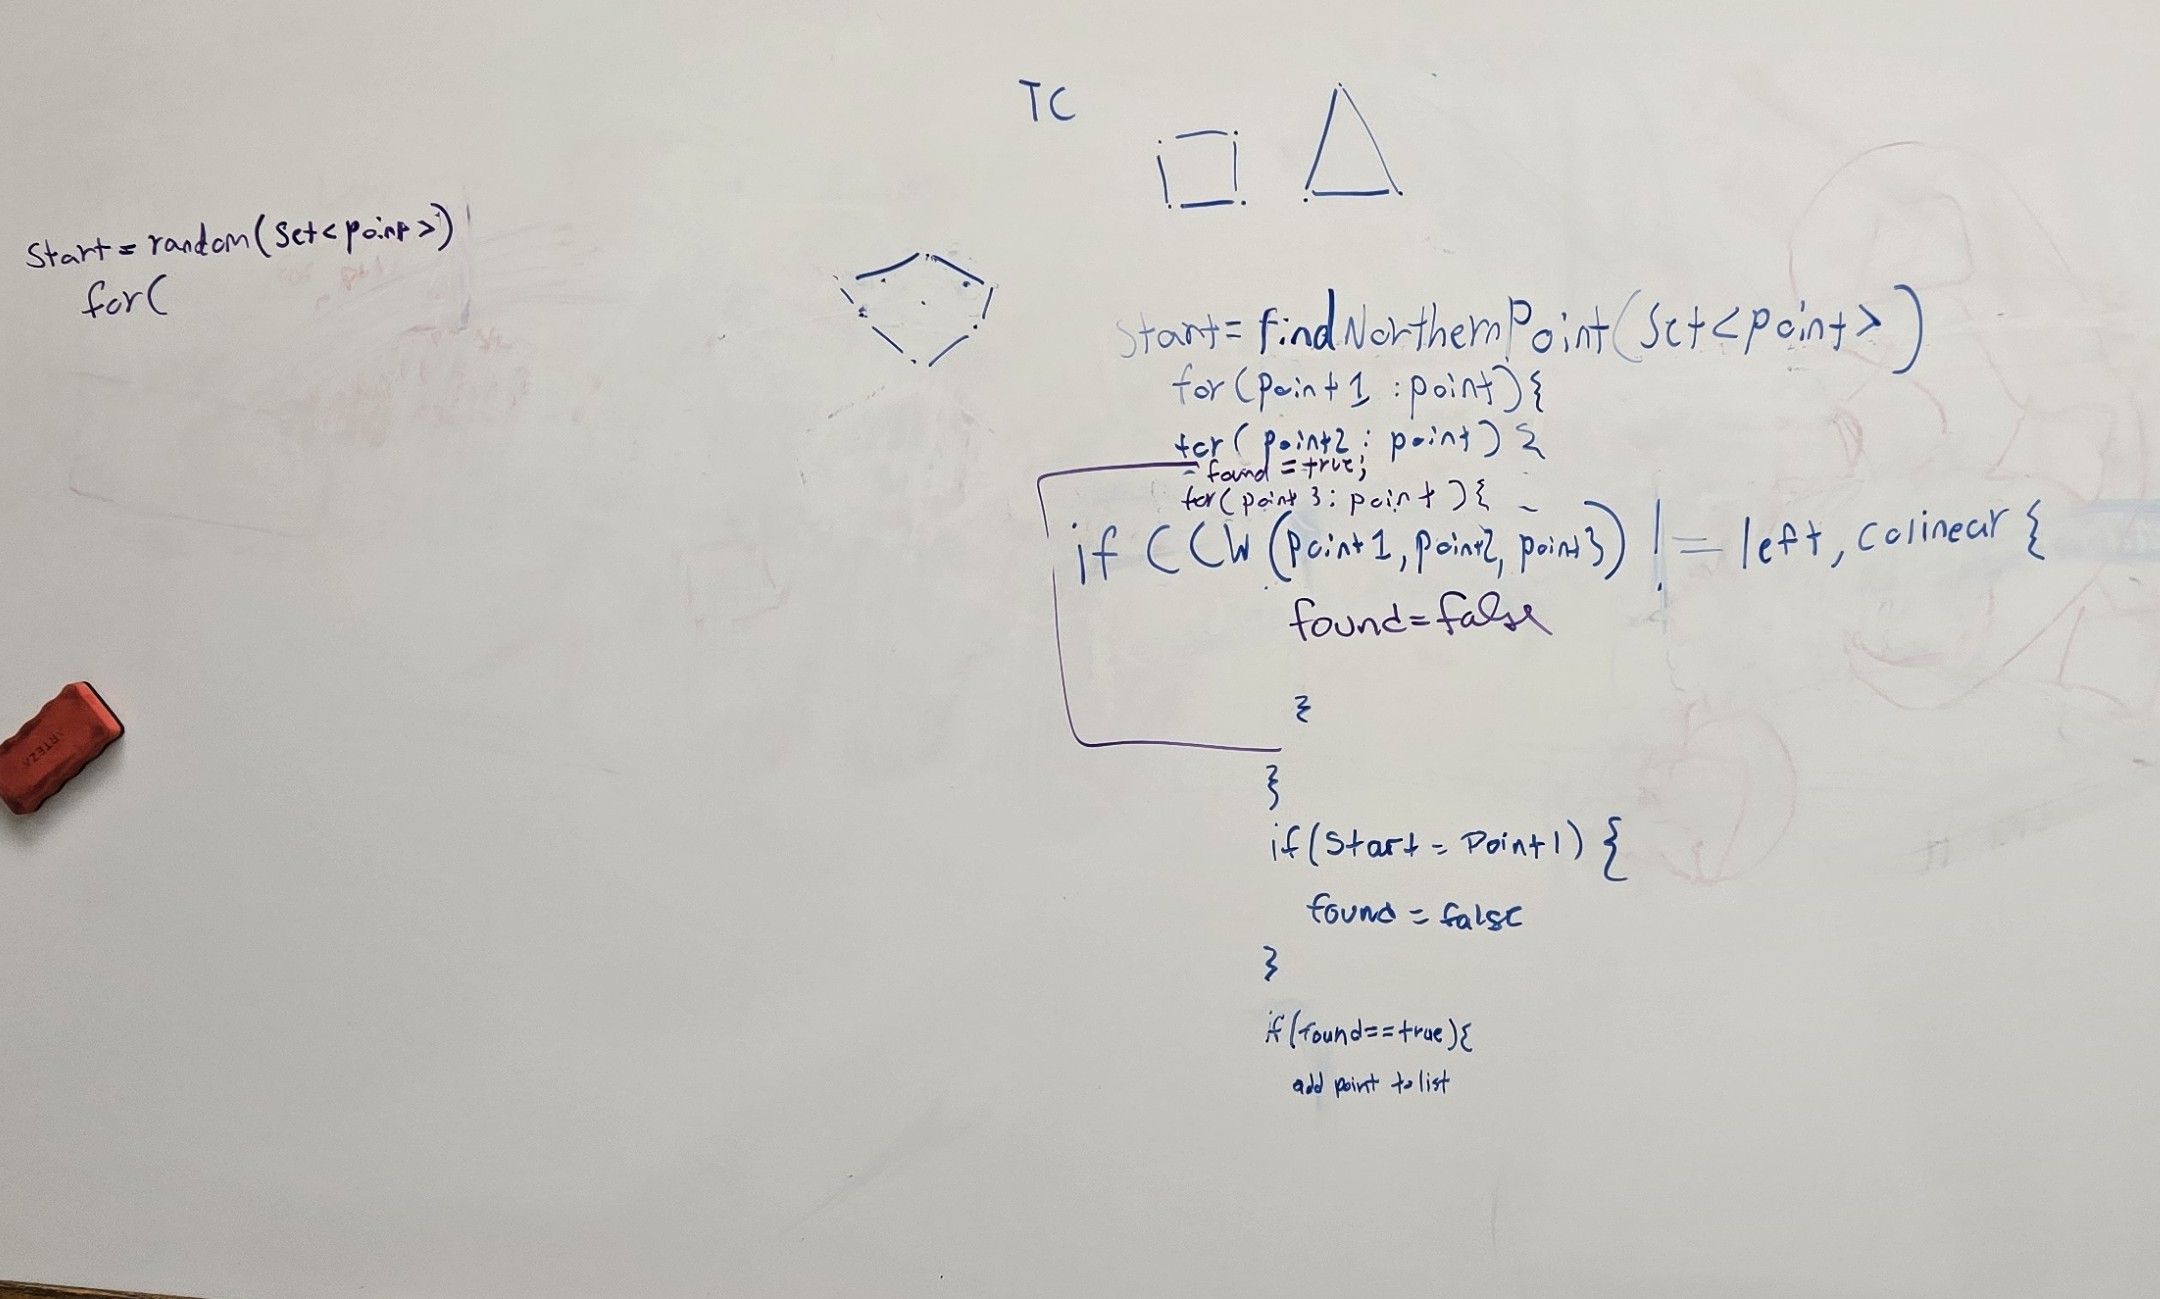 TC
Start = random(Set<point>)
for(
Start = findNorthernPoint(Set<point>)
for(point1 : point){
for( point2 : point) {
found = true;
for(point3 : point){
if CCW(point1, point2, point3) != left, colinear {
found = false
}
}
if(Start = Point1) {
found = false
}
if(found==true){
add point to list
ARTEZA